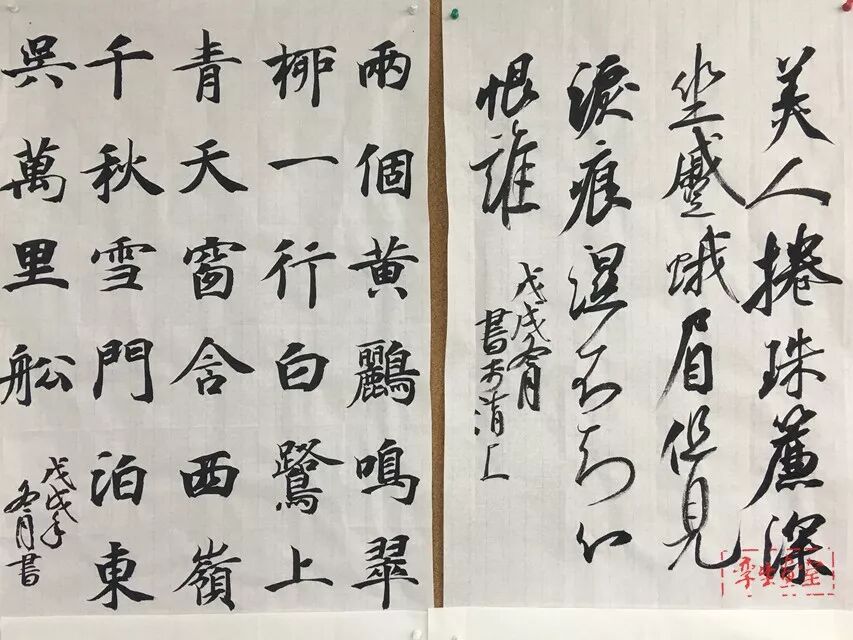 美人捲珠簾深
坐蹙蛾眉但見
淚痕濕不知心
恨誰
戊戌冬月
書於清上
兩個黃鸝鳴翠
柳一行白鷺上
青天窗含西嶺
千秋雪門泊東
吳萬里船
戊戌年
冬月書